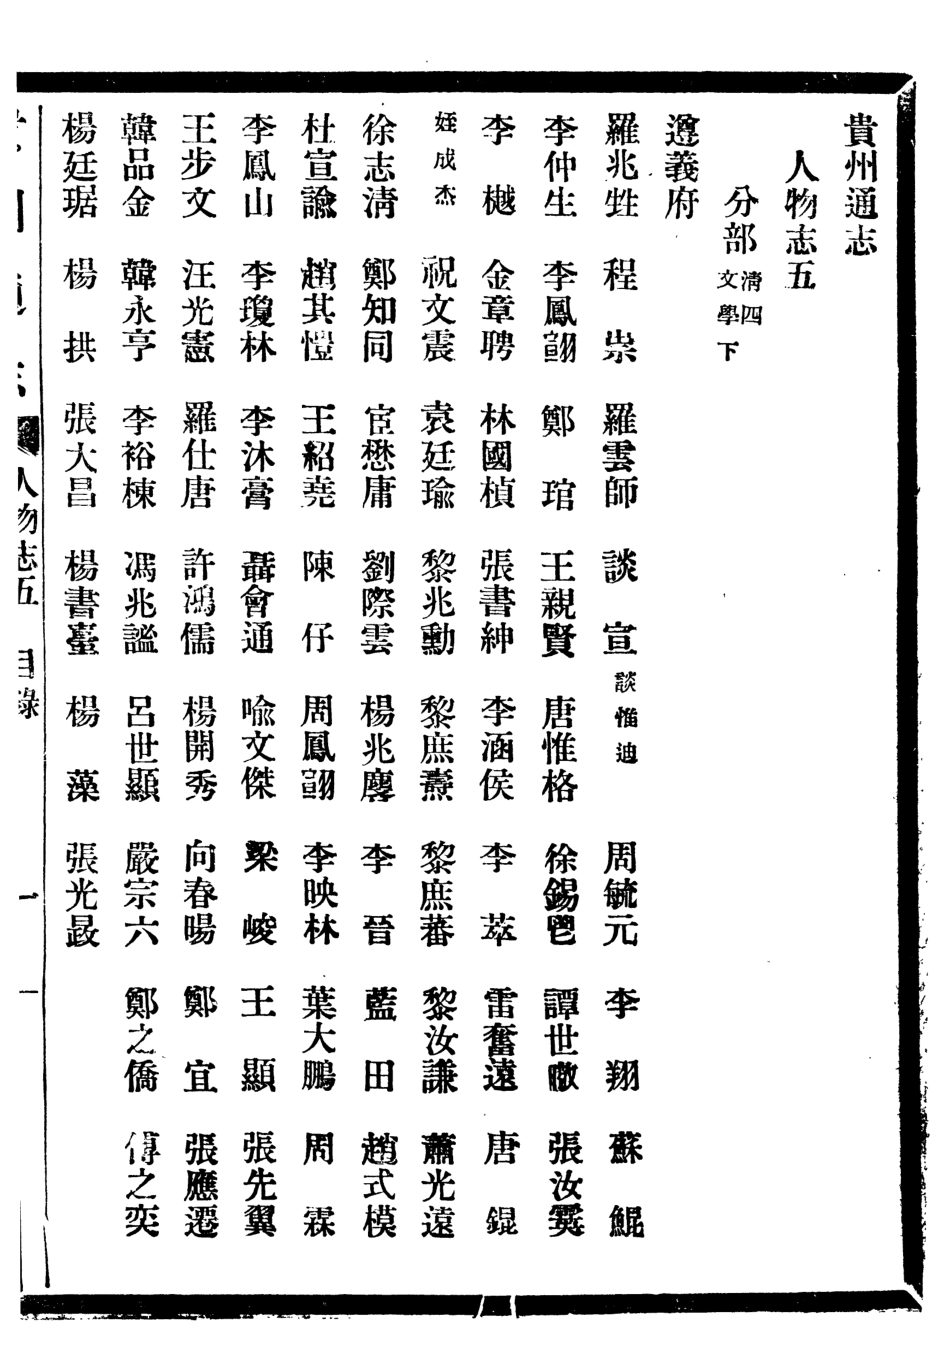 貴州通志
人物志五
分部清四文學下
遵義府
羅兆甡 程祟 羅雲師 談宣談惟迪 周毓元 李翔 蘇鯤
李仲生 李鳳翧 鄭琯 王親賢 唐惟格 徐錫鬯 譚世暾 張汝霙
李樾 金章聘 林國楨 張書紳 李涵侯 李萃 雷奮遠 唐錕
姪成杰 祝文震 袁廷瑜 黎兆勳 黎庶燾 黎庶蕃 黎汝謙 蕭光遠
徐志淸 鄭知同 宦懋庸 劉際雲 楊兆麐 李晉 藍田 趙式模
杜宣諭 趙其愷 王紹堯 陳仔 周鳳翧 李映林 葉大鵬 周霖
李鳳山 李瓊林 李沐膏 聶會通 喩文傑 梁峻 王顯 張先翼
王步文 汪光憲 羅仕唐 許鴻儒 楊開秀 向春暘 鄭宜 張應遷
韓品金 韓永亨 李裕棟 馮兆謐 呂世顯 嚴宗六 鄭之僑 傅之奕
楊廷琚 楊拱 張大昌 楊書臺 楊藻 張光
人物志五 目錄 一